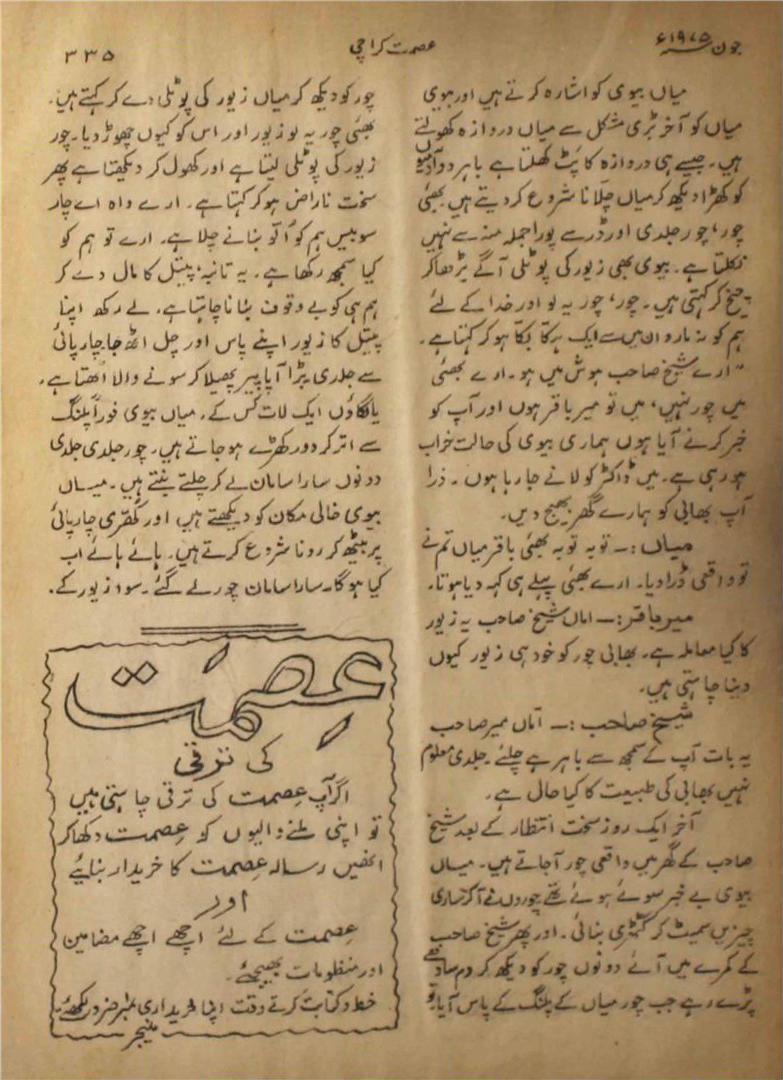 جون ۱۹۷۵ء
عصمت کراچی
۳۳۵
میاں بیوی کو اشارہ کرتے ہیں اور بیوی
میاں کو آخر بڑی مشکل سے میاں دروازہ کھولتے
ہیں۔ جیسے ہی دروازہ کا پٹ کھلتا ہے باہر دو آدمیوں
کو کھڑا دیکھ کر میاں چلانا شروع کر دیتے ہیں بھئی
چور، چور جلدی اور ڈر سے پورا جملہ منہ سے نہیں
نکلتا ہے۔ بیوی بھی زیور کی پوٹلی آگے بڑھا کر
چیخ کر کہتی ہیں۔ چور، چور یہ لو اور خدا کے لئے
ہم کو نہ مارو ان میں سے ایک ہکا بکا ہو کر کہتا ہے۔
"ارے شیخ صاحب ہوش میں ہو۔ ارے بھئی
میں چور نہیں، میں تو میر باقر ہوں اور آپ کو
خبر کرنے آیا ہوں ہماری بیوی کی حالت خراب
ہو رہی ہے۔ میں ڈاکٹر کو لانے جا رہا ہوں۔ ذرا
آپ بھابی کو ہمارے گھر بھیج دیں۔
میاں :۔ توبہ توبہ بھئی باقر میاں تم نے
تو واقعی ڈرا دیا۔ ارے بھئی پہلے ہی کہہ دیا ہوتا۔
میر باقر :۔ اماں شیخ صاحب یہ زیور
کا کیا معاملہ ہے۔ بھابی چور کو خود ہی زیور کیوں
دینا چاہتی ہیں۔
شیخ صاحب :۔ اماں میر صاحب
یہ بات آپ کے سمجھ سے باہر ہے چلئے۔ جلدی معلوم
نہیں بھابی کی طبیعت کا کیا حال ہے۔
آخر ایک روز سخت انتظار کے بعد شیخ
صاحب کے گھر میں واقعی چور آ جاتے ہیں۔ میاں
بیوی بے خبر سوئے ہوئے تھے چوروں نے آ کر ساری
چیزیں سمیٹ کر گٹھری بنائی۔ اور پھر شیخ صاحب
کے کمرے میں آئے دونوں چور کو دیکھ کر دم سادھے
پڑے رہے جب چور میاں کے پلنگ کے پاس آیا۔ تو
چور کو دیکھ کر میاں زیور کی پوٹلی دے کر کہتے ہیں۔
بھئی چور یہ لو زیور اور اس کو کیوں چھوڑ دیا۔ چور
زیور کی پوٹلی لیتا ہے اور کھول کر دیکھتا ہے پھر
سخت ناراض ہو کر کہتا ہے۔ ارے واہ اے چار
سو بیس ہم کو اُلّو بنانے چلا ہے۔ ارے تو ہم کو
کیا سمجھ رکھا ہے۔ یہ تانبہ، پیتل کا مال دے کر
ہم ہی کو بے وقوف بنانا چاہتا ہے، لے رکھ اپنا
پیتل کا زیور اپنے پاس اور چل اٹھ جا چارپائی
سے جلدی بڑا آیا پیر پھیلا کر سونے والا اُٹھتا ہے،
یا لگاؤں ایک لات کس کے، میاں بیوی فوراً پلنگ
سے اتر کر دور کھڑے ہو جاتے ہیں۔ چور جلدی جلدی
دونوں سارا سامان لے کر چلتے بنتے ہیں۔ میاں
بیوی خالی مکان کو دیکھتے ہیں اور کُھرّی چارپائی
پر بیٹھ کر رونا شروع کرتے ہیں۔ ہائے ہائے اب
کیا ہو گا۔ سارا سامان چور لے گئے۔ سوا زیور کے۔
عصمت
کی ترقی
اگر آپ عصمت کی ترقی چاہتی ہیں
تو اپنی ملنے والیوں کو عصمت دکھا کر
انھیں رسالہ عصمت کا خریدار بنایئے
اور
عصمت کے لئے اچھے اچھے مضامین
اور منظومات بھیجئے۔
خط و کتابت کرتے وقت اپنا خریداری نمبر ضرور لکھئے۔
منیجر